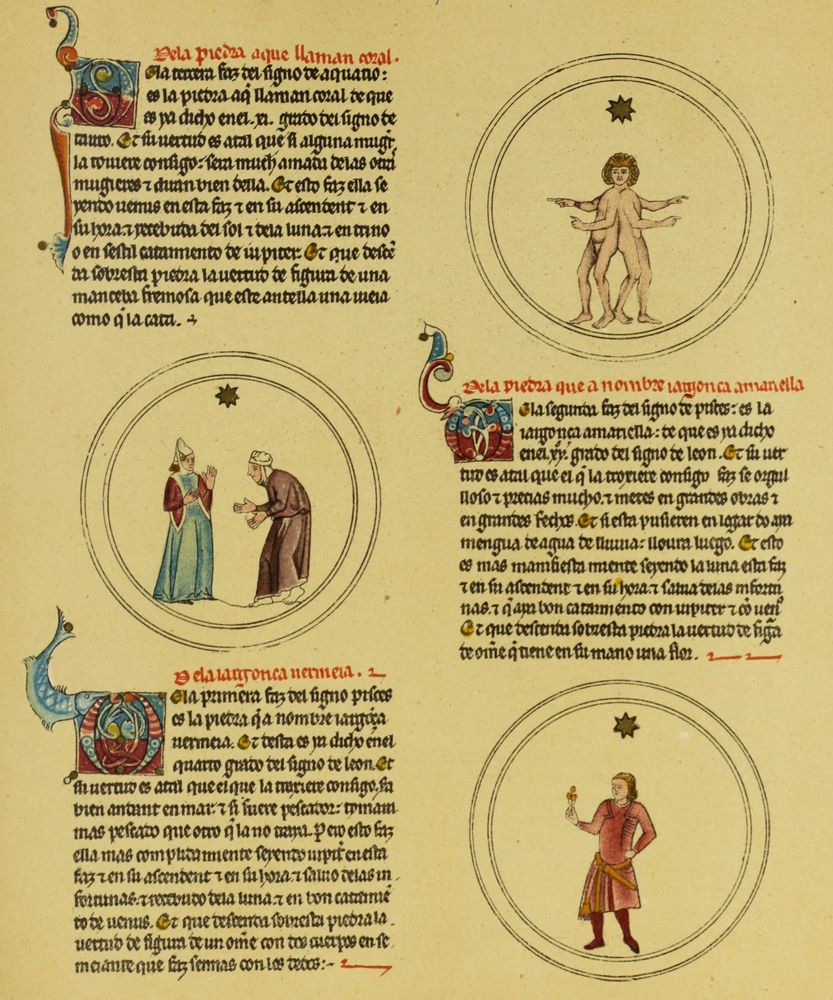 Dela piedra aque llaman coral.
Dela tercera faz del signo de aquario:
es la piedra aq̄ llaman coral de que
es ya dicho enel .xi. grado del signo de
tauro. Et su uertud es atal que si alguna mugr̄
la touiere consigo: sera much amada delas otrā
mugieres ⁊ auran bien della. Et esto faz ella se
yendo uenus en esta faz ⁊ en su ascendent ⁊ en
su hora ⁊ recebuda del sol ⁊ dela luna ⁊ en trino
o en sestil catamiento de iupiter. Et que descē
da sobresta piedra la uertud de figura de una
manceba fremosa que este antella una uieia
como q̄ la cata.
Dela iargonça uermeia.
Dela primera faz del signo pisces
es la piedra q̄ a nombre iargōça
uermeia. Et desta es ya dicho enel
quarto grado del signo de leon. Et
su uertud es atal que el que la troxiere consigo, sā
bien andant en mar. ⁊ si fuere pescador: tomara
mas pescado que otro q̄ la no traya. Pero esto faz
ella mas complida miente seyendo iupit̄ en esta
faz ⁊ en su ascendent ⁊ en su hora ⁊ saluo delas in
fortunas. ⁊ recebudo dela luna. ⁊ en bon catamiē
to de uenus. Et que descenda sobresta piedra la
uertud de figura de un om̄e con dos cuerpos en se
meiante que faz sennas con los dedos:
Dela piedra que a nombre iargonça amariella
Dela segunda faz del signo de pisces: es la
iargonça amariella: de que es ya dicho
enel .xv. grado del signo de leon. Et su uer
tud es atal que el q̄ la troxiere consigo faz se orgul
lloso ⁊ precias mucho. ⁊ metes en grandes obras ⁊
en grandes fechos. Et si esta pusieren en logar do aya
mengua de agua de lluuia: lloura luego. Et esto
es mas manifiesta miente seyendo la luna esta faz
⁊ en su ascendent ⁊ en su hora ⁊ salua delas infortu
nas. ⁊ q̄ aya bon catamiento con iupiter ⁊ cō uen9
Et que descenda sobresta piedra la uertud de figā
de om̄e q̄ tiene en su mano una flor.